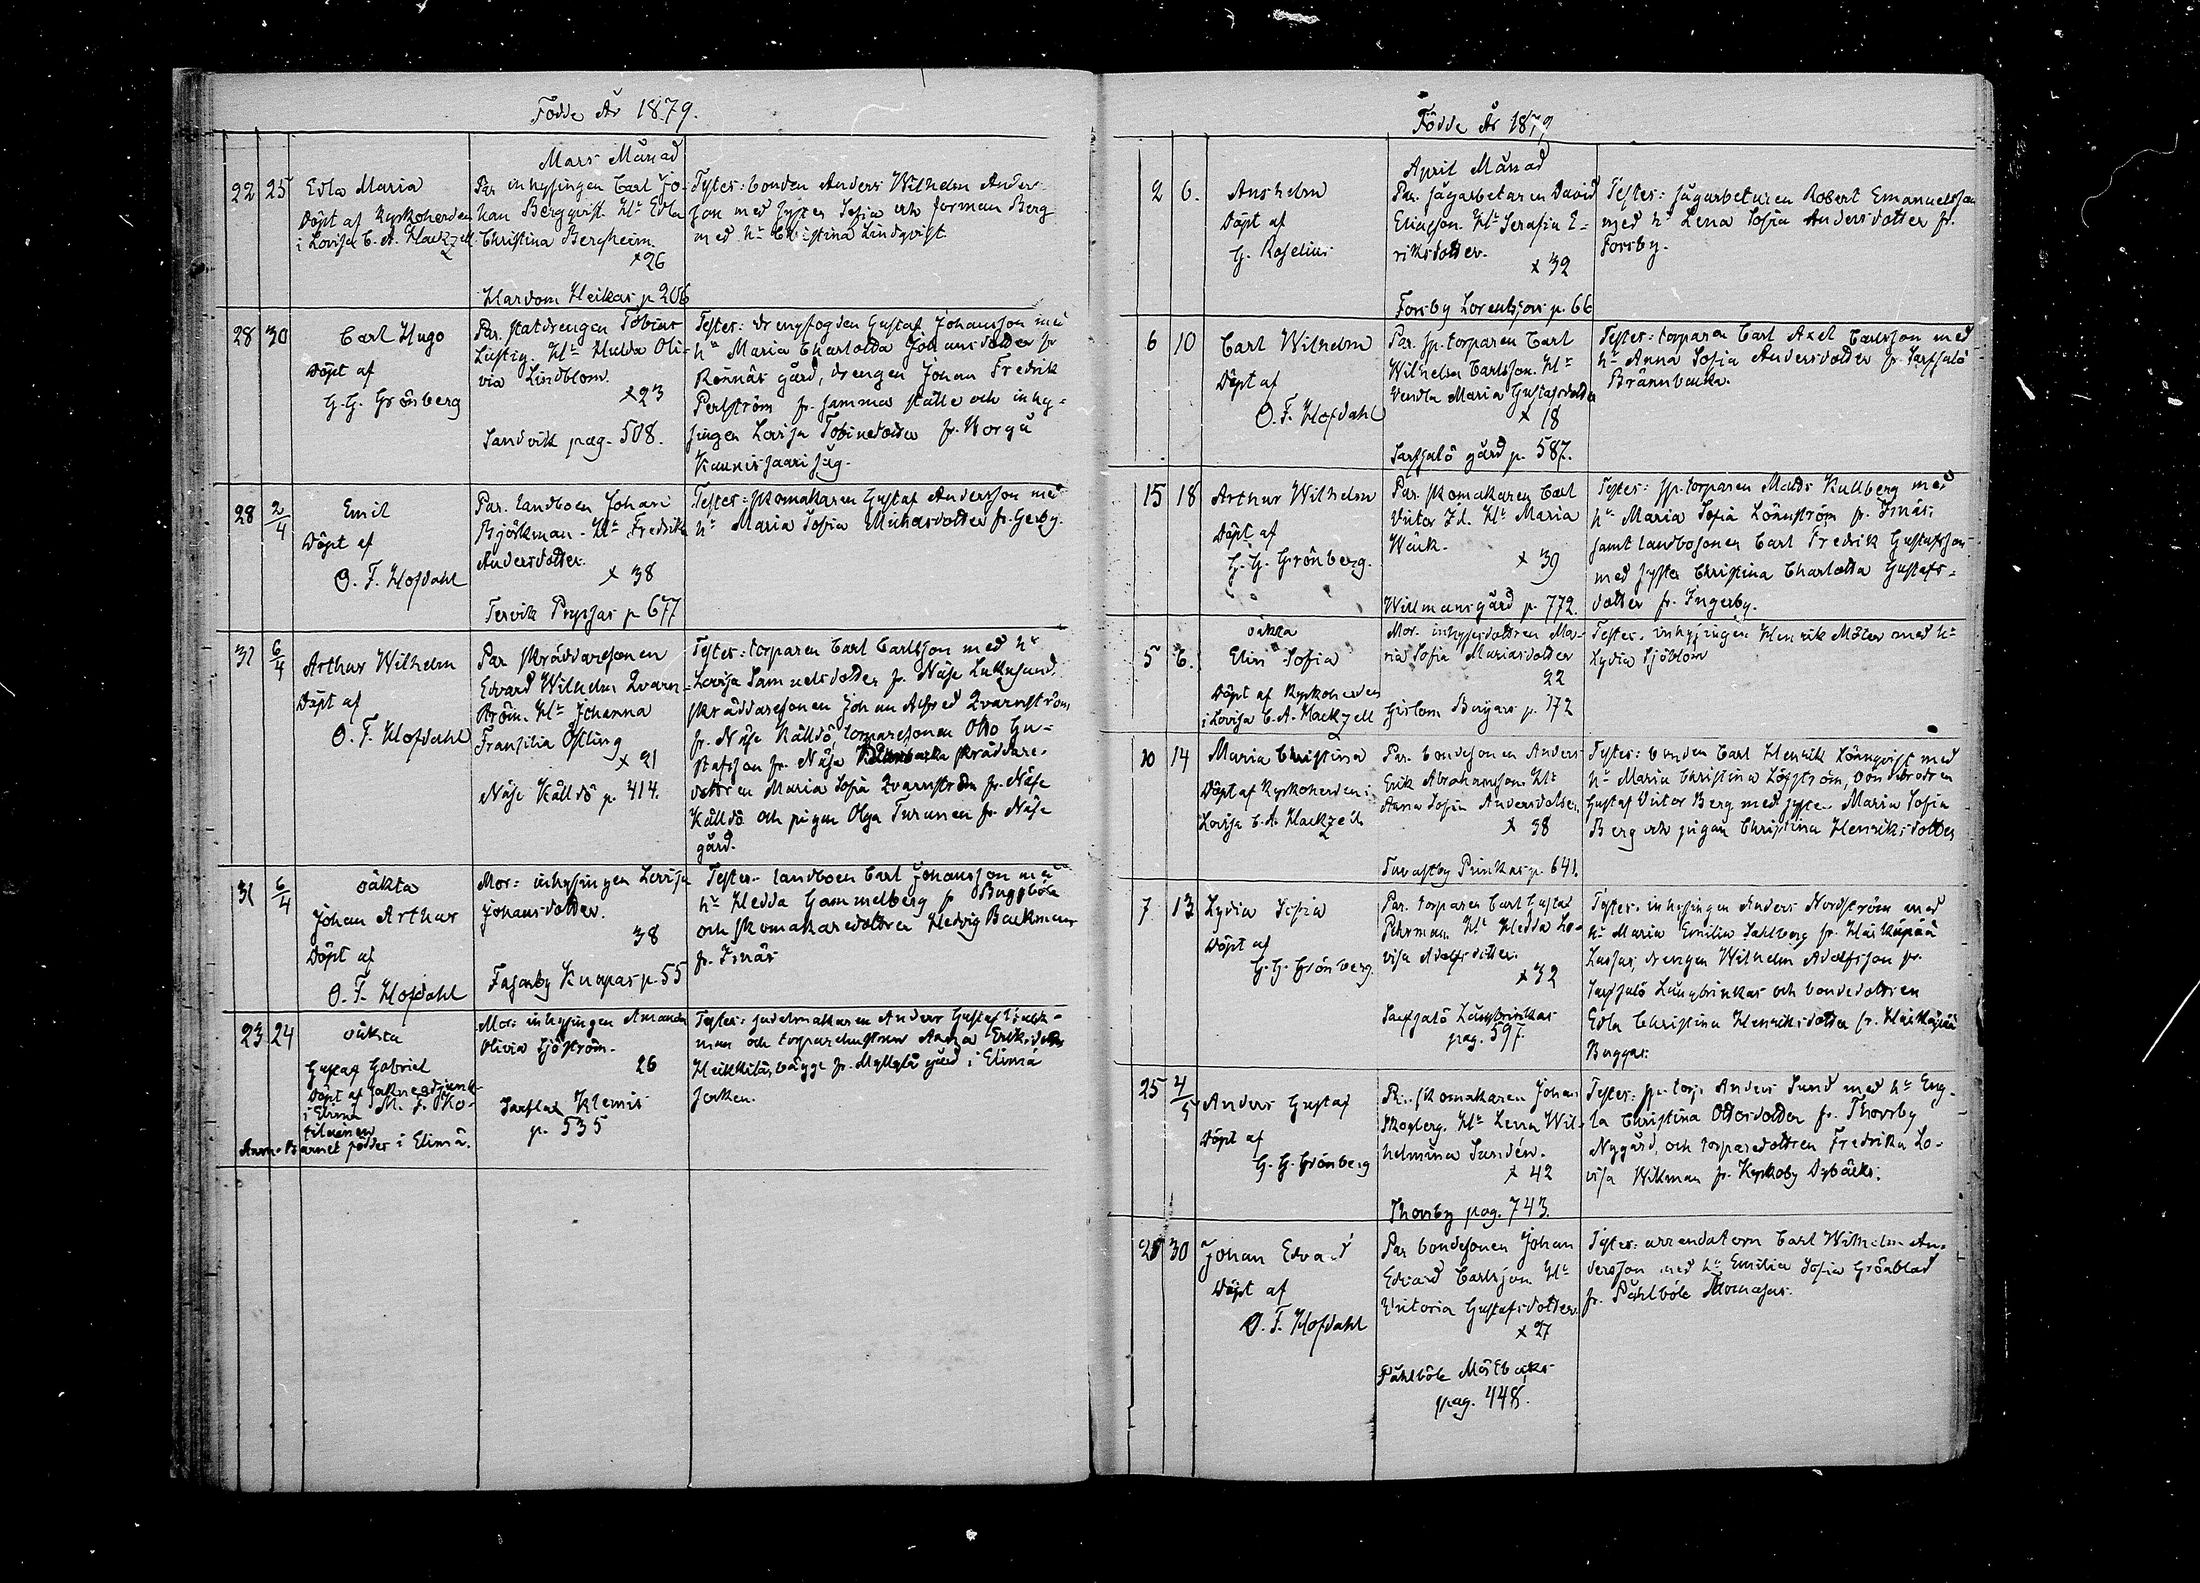 Födde År 1879.
Mars Månad
22 25 Edla Maria
Döpt af Kyrkoherden
i Lovisa C. A. Hackzell
Par. inhysingen Carl Jo-
han Bergqvist. Hu Edla
Christina Bergheim.
x 26
Hardom Heikas p 206
Testes: bonden Anders Wilhelm Anders-
son med syster Sofia och forman Berg
med hu Christina Lindqvist
28 30 Carl Hugo
Döpt af
G. G. Grönberg
Par. statdrengen Tobias
Lustig. Hu Hulda Oli-
via Lindblom.
x 23
Sandvik pag. 508.
Testes: drengfogden Gustaf Johansson med
hu Maria Charlotta Johansdotter fr
Rönnäs gård, drengen Johan Fredrik
Perlström fr. samma ställe och inhy-
singen Lovisa Tobinedotter fr. Norgå
Kaunissaari såg.
28 2/4 Emil
Döpt af
O. F. Hofdahl
Par. landboen Johan
Björkman. Hu Fredrika
Andersdotter.
x 38
Tervik Pryssas p 677
Testes: skomakaren Gustaf Andersson med
hu Maria Sofia Mickasdotter fr. Gerby.
31 6/4 Arthur Wilhelm
Döpt af
O. F. Hofdahl
Par skräddaresonen
Edvard Wilhelm Qvarn-
ström. Hu Johanna
Fransilia Östling
x 21
Näse Källdö p. 414.
Testes: torparen Carl Carlsson med hu
Lovisa Samuelsdotter fr. Näse Lukusund,
skräddaresonen Johan Alfred Qvarnström
fr. Näse Källdö, tomaresonen Otto Gu-
stafsson fr. Näse skräddare-
dottren Maria Sofia Qvarnström fr. Näse
Källdö och pigan Olga Turunen fr. Näse
gård.
31 6/4 oäkta
Johan Arthur
Döpt af
O. F. Hofdahl
Mor: inhysingen Lovisa
Johansdotter.
38
Fasarby Kuppas p. 55
Testes. landboen Carl Johansson med
hu Hedda Gammelberg fr Buggböle
och skomakaredottren Hedvig Backman
fr. Isnäs
23 24 oäkta
Gustaf Gabriel
Döpt af sockneadjunk-
i Elimä M. F. Ko-
Anm. Barnet föddes i Elimä.
Mor: inhysingen Amanda
Olivia Sjöström.
26
Sarflax Klemis
p. 535
Testes: sadelmakaren Anders Gustaf
man och torparehustrun Anna Eriksdotter
Heikkilä, bägge fr. Myllylä gård i Elimä
socken.
Födde År 1879
April Månad
2 6. Anshelm
Döpt af
G. Roselius
Par. sågarbetaren David
Ericsson. Hu Serafia E-
riksdotter.
x 32
Forsby Lorentssons p. 66
Testes: sågarbetaren Robert Emanuelsson
med hu Lena Sofia Andersdotter fr.
Forsby.
6 10 Carl Wilhelm
Döpt af
O. F. Hofdahl
Par. sp. torparen Carl
Wilhelm Carlsson. Hu
Vendla Maria Gustafsdotter
x 18
Sarfsalö gård p. 587.
Testes: torparen Carl Axel Carlsson med
hu Anna Sofia Andersdotter fr. Sarfsalö
Brännbacka.
15 18 Arthur Wilhelm
Döpt af
G. G. Grönberg.
Par. skomakaren Carl
Victor Id. Hu Maria
Wäck.
x 39
Willmansgård p. 772.
Testes: sp. torparen Matts Kullberg med
hu Maria Sofia Lönnström fr. Isnäs,
samt landbosonen Carl Fredrik Gustafsson
med syster Christina Charlotta Gustafs-
dotter fr. Ingerby.
5 6. oäkta
Elin Sofia
Döpt af Kyrkoherden
i Lovisa C. A. Hackzell
Mor. inhysesdottren Ma-
ria Sofia Mariasdotter
22
Gislom Buijars p. 172
Testes. inhysingen Henrik Möler med hu
Lydia Sjöblom
10 14 Maria Christina
Döpt af Kyrkoherden i
Lovisa C. A. Hackzell
Par. bondesonen Anders
Erik Abrahamsson. Hu
Anna Sofia Andersdotter
x 38
Tavastby Prinkas p. 641.
Testes: bonden Carl Henrik Lönnqvist med
hu Maria Christina Löfström, bondbrodren
Gustaf Victor Berg med syster Maria Sofia
Berg och pigan Christina Henriksdotter
7 13 Lydia Sofia
Döpt af
G. G. Grönberg.
Par. torparen Carl Gustaf
Pehrman Hu Hedda Lo-
visa Adolfsdotter.
x 32
Sarfsalö Långbrinkas
pag. 597.
Testes. inhysingen Anders Nordström med
hu Maria Emilia Sahlberg fr. Härkäpää
Lassas, drengen Wilhelm Adolfsson fr.
Sarfsalö Långbrinkas och bondedottren
Edla Christina Henriksdotter fr. Härkäpää
Buggas.
25 4/5 Anders Gustaf
Döpt af
G. G. Grönberg
Par. skomakaren Johan
Skogberg. Hu Lena Wil-
helmina Sundén.
x 42
Thorsby pag. 743.
Testes: sp. torp. Anders Sund med hu Eng-
la Christina Ottosdotter fr. Thorsby
Nygård, och torparedottren Fredrika Lo-
visa Wikman fr. Kyrkoby Dybäcks.
28 30 Johan Edvard
Döpt af
O. F. Hofdahl
Par bondesonen Johan
Edvard Carlsson Hu
Victoria Gustafsdotter.
x 27
Påhlböle Mårtbacks
pag. 448.
Testes: arrendatorn Carl Wilhelm An-
dersson med hu Emilia Sofia Grönblad
fr. Påhlböle Thomasas.